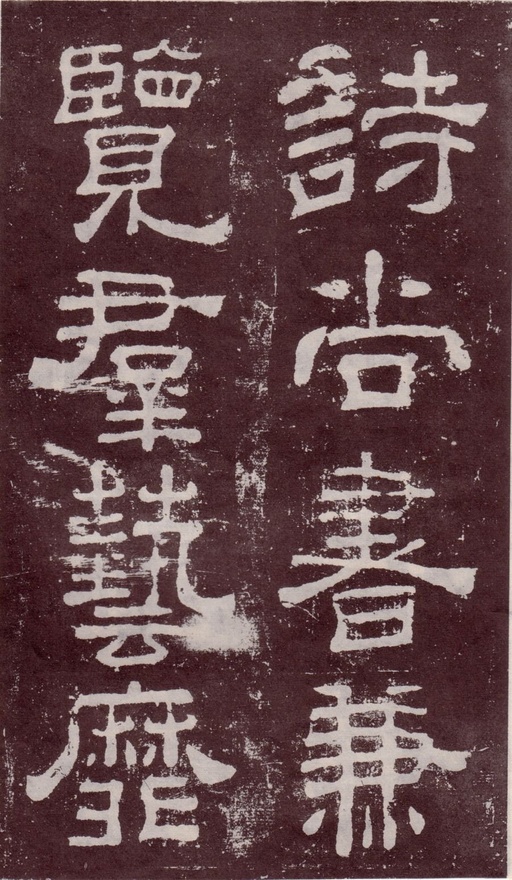 詩尚書兼
覽群藝靡